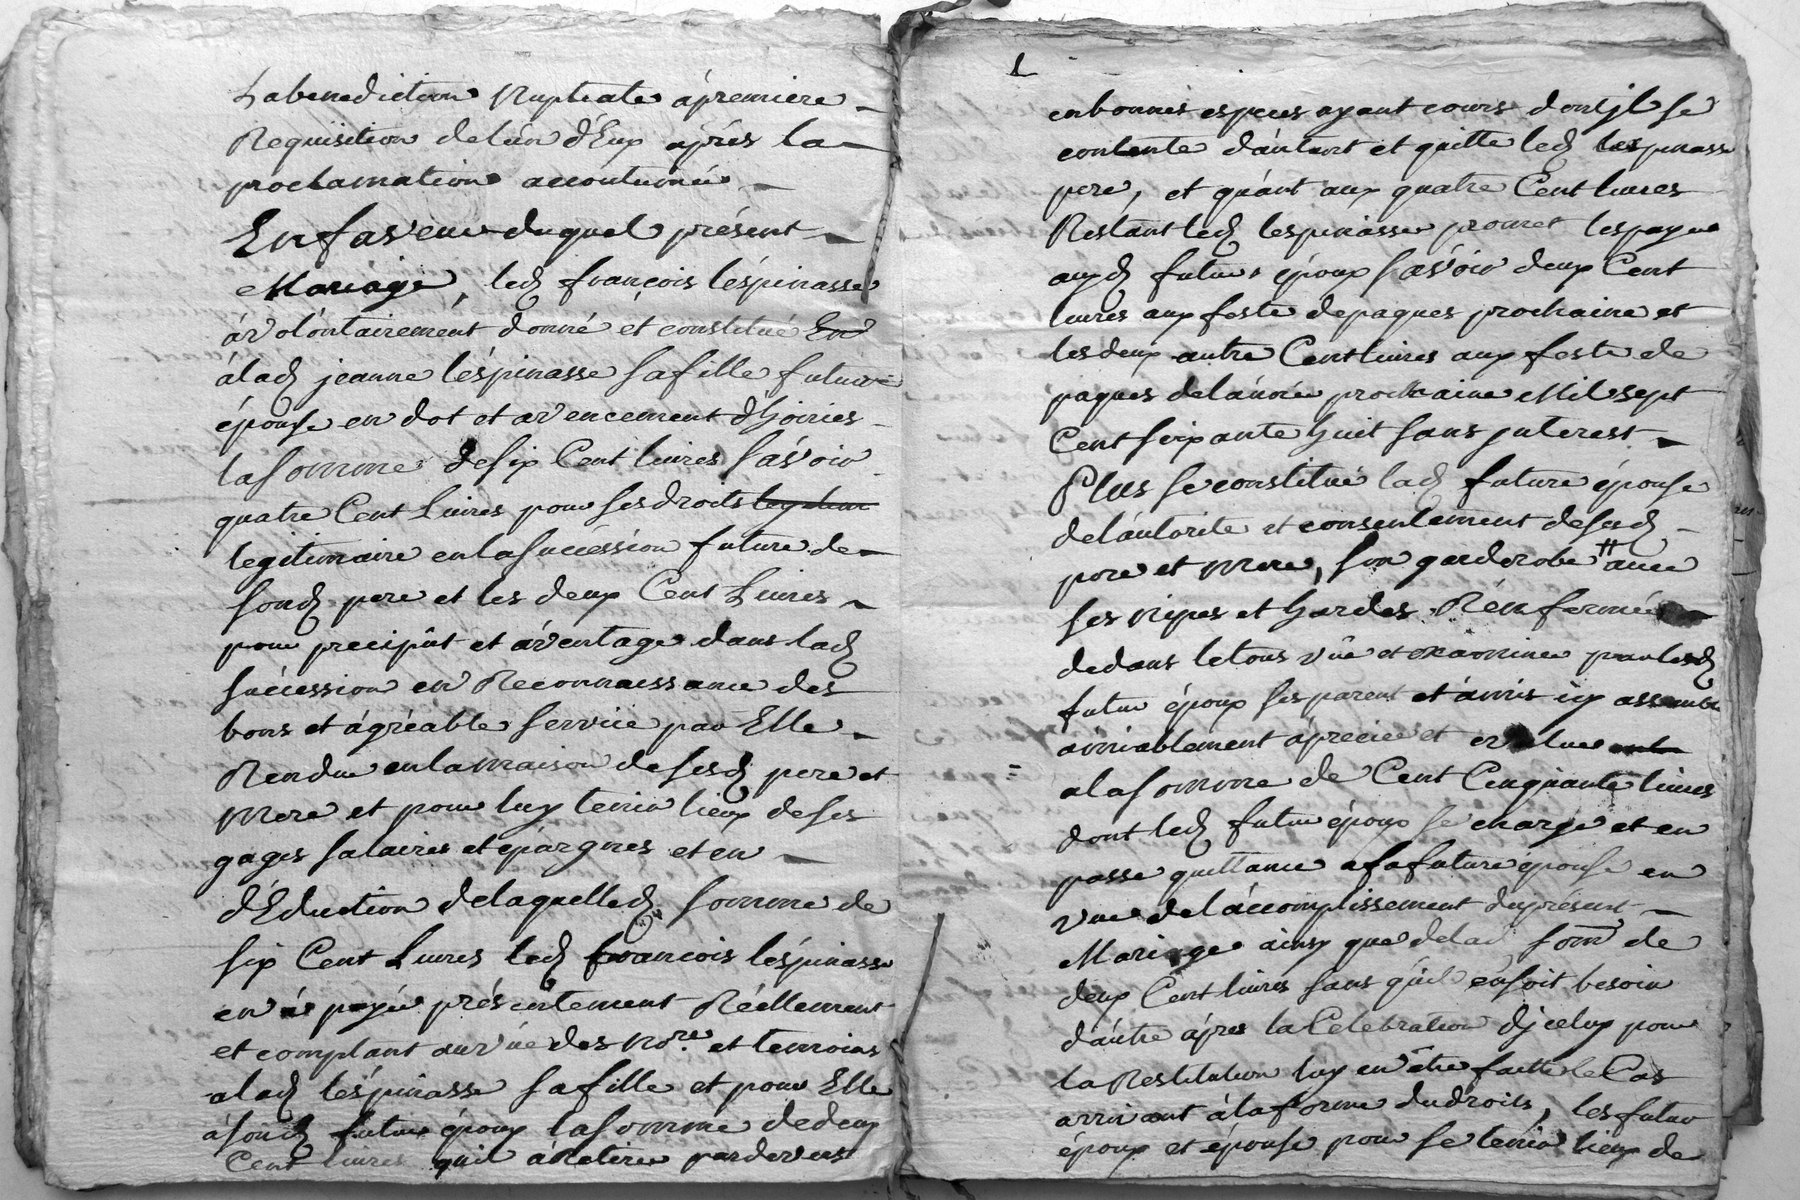 La benediction Nuptiale á premiere
Requisition de lún dEux aprés la
proclamation accoutumée
En faveur du quel présent
Mariage, led françois léspinasse
áv olóntairemént donné et constitué En
á lad jeanne léspinasse sa fille future
épouse en dot et avencement dhoiries
la somme de six Cent livres sávoir
quatre Cent Livres pour ses droits legitim
legitimaire en la succéssion future de
sond pere et les deux Cent Livres
pour precipût et ávéntage dans lad
succession en Reconnaissance des
bons et ágréable service par Elle
Rendu en la maison de sesd pere et
Mere et pour luy tenir lieux de ses
gages salaires et épárgnes et en
dÉduction de laquelled somme de
six Cent Livres led françois léspinasse
en á payé préséntement Réellement
et comptant au vúe des Nore et temoins
a lad léspinasse sa fille et pour Elle
á sond futur époux la somme de deux
Cent livres quil á Retiré pardevers
1
en bonnes especes ayant cours dont jl se
contente dáutant et quitte led lespinasse
pere, et quánt aux quatre Cent livres
Restant led lespinasse promet les payer
auxd futurs époux sávoir deux Cent
livres aux feste de paques prochaine et
les deux autre Cent livres aux feste de
paques de lánnée prochaine Mil sept
Cent soixante huit sans jnterest
Plus se constitué lad future épouse
de láutorite et consentement de sesd
pere et Mere, son garderobe # avec
ses nipes et hardes Rénfermée
dedans le tous vúe et examinée par lesd
futur époux ses parent et ámis icy assemblé
amiablement ápreciée et evaluée
a la somme de Cent Cinquante livres
dont led futur époux se charge et en
passe quittance a sa future epouse en
vue de láccomplissement du présent
Mariage ainsy que de lad somé de
deux Cent livres sans quil ensoit besoin
dáutre áprés la Celebration djceluy pour
la Restitution luy en être faitte le Cas
arrivant á la forme du droits, les futur
époux et épouse pour se tenir lieux de